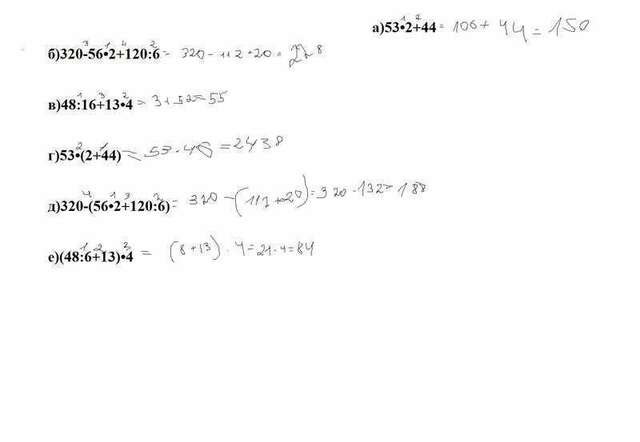 а)53•2+44 = 106 + 44 = 150
б)320-56•2+120:6 = 320 - 112 + 20 = 228
в)48:16+13•4 = 3 + 52 = 55
г)53•(2+44) = 53 • 46 = 2438
д)320-(56•2+120:6) = 320 - (112 + 20) = 320 - 132 = 188
е)(48:6+13)•4 = (8 + 13) • 4 = 21 • 4 = 84